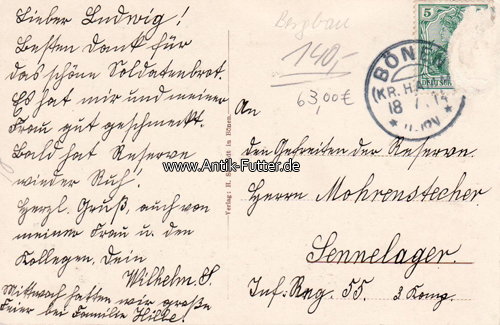 Lieber Ludwig!
Besten Dank für
das schöne Soldatenbrot.
Es hat mir und meiner
Frau gut geschmeckt.
Bald hat Reserve
wieder Ruh!
Herzl. Gruß, auch von
meiner Frau u. den
Kollegen. Dein
Wilhelm S.
Mittwoch hatten wir große
Feier bei Familie Hilke!
Verlag: H. in Bönen.
Bergbau
140,-
63,00€
5
BÖNEN
(KR. HA
18 7
An
den Gefreiten der Reserve
Herrn Mohrenstecher
Sennelager.
Inf. Reg. 55. 3 Komp.
www.Antik-Futter.de